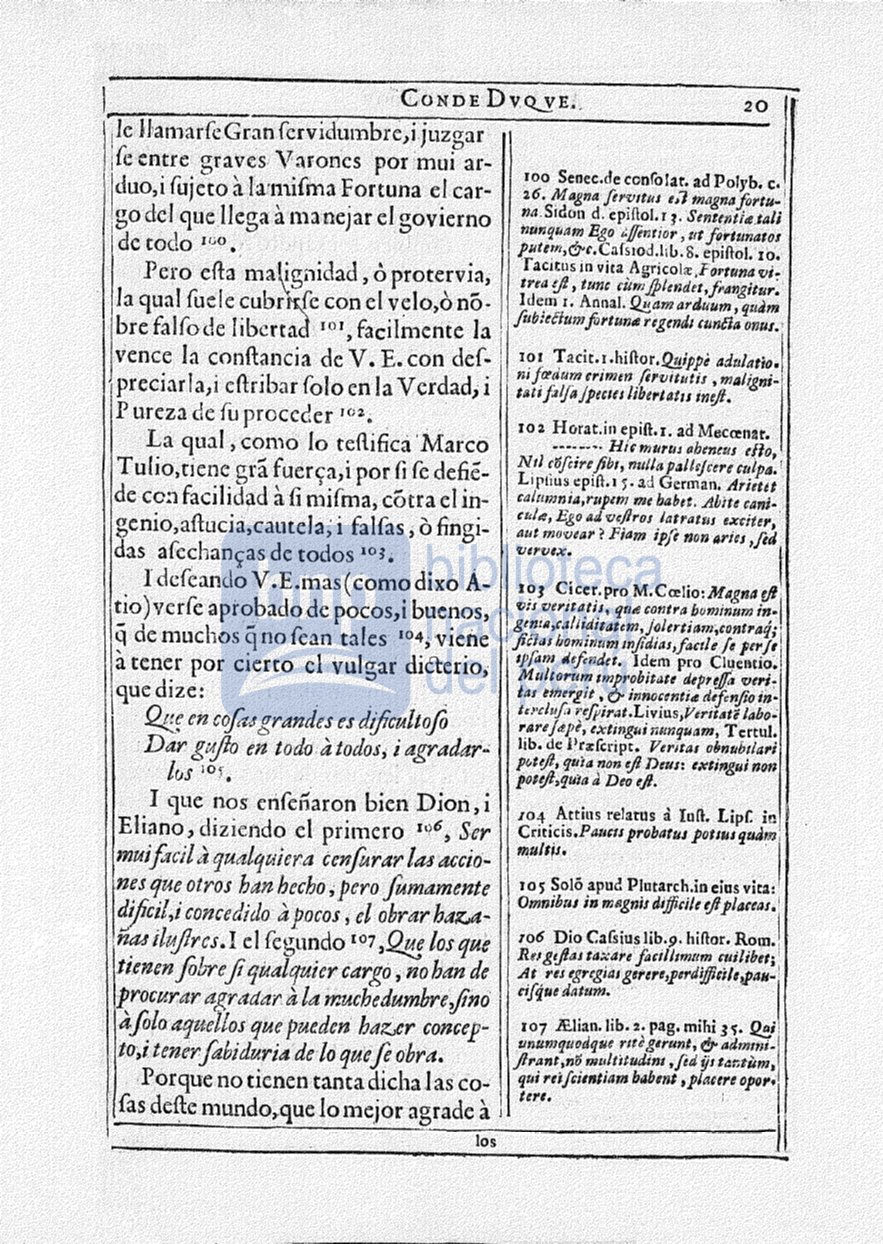 CONDE DVQVE.
20
le llamarſe Gran ſervidumbre, i juzgar
ſe entre graves Varones por mui ar-
duo, i ſujeto à la miſma Fortuna el car-
go del que llega à manejar el govierno
de todo 100.
Pero eſta malignidad, ò protervia,
la qual ſuele cubrirſe con el velo, ò nō-
bre falſo de libertad 101, facilmente la
vence la conſtancia de V. E. con deſ-
preciarla, i eſtribar ſolo en la Verdad, i
Pureza de ſu proceder 102.
La qual, como lo teſtifica Marco
Tulio, tiene grã fuerça, i por ſi ſe defiē-
de con facilidad à ſi miſma, cōtra el in-
genio, aſtucia, cautela, i falſas, ò fingi-
das aſechanças de todos 103.
I deſeando V. E. mas (como dixo A-
tio) verſe aprobado de pocos, i buenos,
q̃ de muchos q̃ no ſean tales 104, viene
à tener por cierto el vulgar dicterio,
que dize:
Que en coſas grandes es dificultoſo
Dar guſto en todo à todos, i agradar-
los 105.
I que nos enſeñaron bien Dion, i
Eliano, diziendo el primero 106, Ser
mui facil à qualquiera cenſurar las accio-
nes que otros han hecho, pero ſumamente
dificil, i concedido à pocos, el obrar haza-
ñas iluſtres. I el ſegundo 107, Que los que
tienen ſobre ſi qualquier cargo, no han de
procurar agradar à la muchedumbre, ſino
à ſolo aquellos que pueden hazer concep-
to, i tener ſabiduria de lo que ſe obra.
Porque no tienen tanta dicha las co-
ſas deſte mundo, que lo mejor agrade à
los
100 Senec. de conſolat. ad Polyb. c.
26. Magna ſervitus eſt magna fortu-
na. Sidon d. epiſtol. 13. Sententiæ tali
nunquam Ego aſſentior, ut fortunatos
putem, &c. Caſsiod. lib. 8. epiſtol. 10.
Tacitus in vita Agricolæ, Fortuna vi-
trea eſt, tunc cùm ſplendet, frangitur.
Idem 1. Annal. Quam arduum, quàm
ſubiectum fortunæ regendi cuncta onus.
101 Tacit. 1. hiſtor. Quippè adulatio-
ni fœdum crimen ſervitutis, maligni-
tati falſa ſpecies libertatis ineſt.
102 Horat. in epiſt. 1. ad Mecœnat.
------- Hic murus aheneus eſto,
Nil cōſcire ſibi, nulla palleſcere culpa.
Lipſius epiſt. 15. ad German. Arietet
calumnia, rupem me habet. Abite cani-
culæ, Ego ad veſtros latratus exciter,
aut movear? Fiam ipſe non aries, ſed
vervex.
103 Cicer. pro M. Cœlio: Magna eſt
vis veritatis, quæ contra hominum in-
genia, calliditatem, ſolertiam, contraq;
fictas hominum inſidias, facile ſe per ſe
ipſam defendet. Idem pro Cluentio.
Multorum improbitate depreſſa veri-
tas emergit, & innocentiæ defenſio in-
tercluſa reſpirat. Livius, Veritatē labo-
rare ſæpè, extingui nunquam, Tertul.
lib. de Præſcript. Veritas obnubilari
poteſt, quia non eſt Deus: extingui non
poteſt, quia à Deo eſt.
104 Attius relatus à Iuſt. Lipſ. in
Criticis. Paucis probatus potius quàm
multis.
105 Solō apud Plutarch. in eius vita:
Omnibus in magnis difficile eſt placeas.
106 Dio Caſsius lib. 9. hiſtor. Rom.
Res geſtas taxare facillimum cuilibet;
At res egregias gerere, perdifficile, pau-
ciſque datum.
107 Ælian. lib. 2. pag. mihi 35. Qui
unumquodque ritè gerunt, & admini-
ſtrant, nō multitudini, ſed ijs tantùm,
qui rei ſcientiam habent, placere opor-
tere.
biblioteca
nacional
del perú